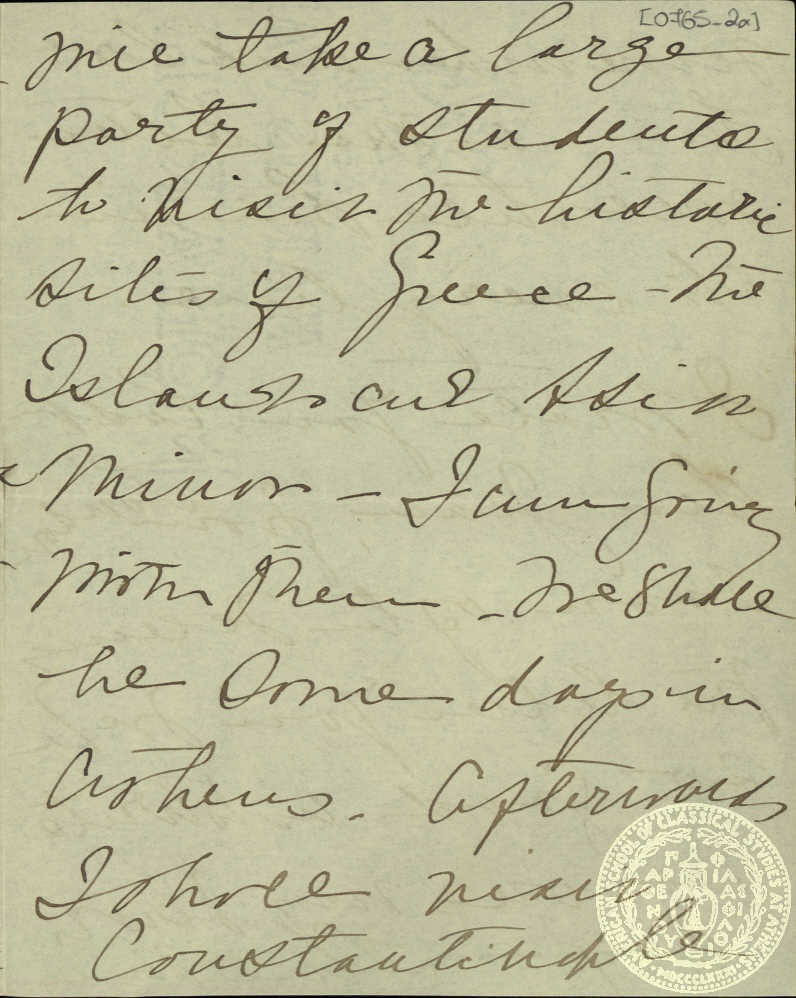 [0765-2a]
will take a large
party of students
to visit the historic
sites of Greece - The
Islands and Asia
Minor - I am going
with them - We shall
be some days in
Athens. Afterwards
I shall visit
Constantinople
AMERICAN SCHOOL OF CLASSICAL STUDIES AT ATHENS
ΠΑΡΘΕΝΟΥ ΦΙΛΑΣ ΦΙΛΟΙ
MDCCCLXXXI